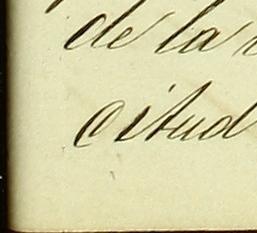 de la
citud